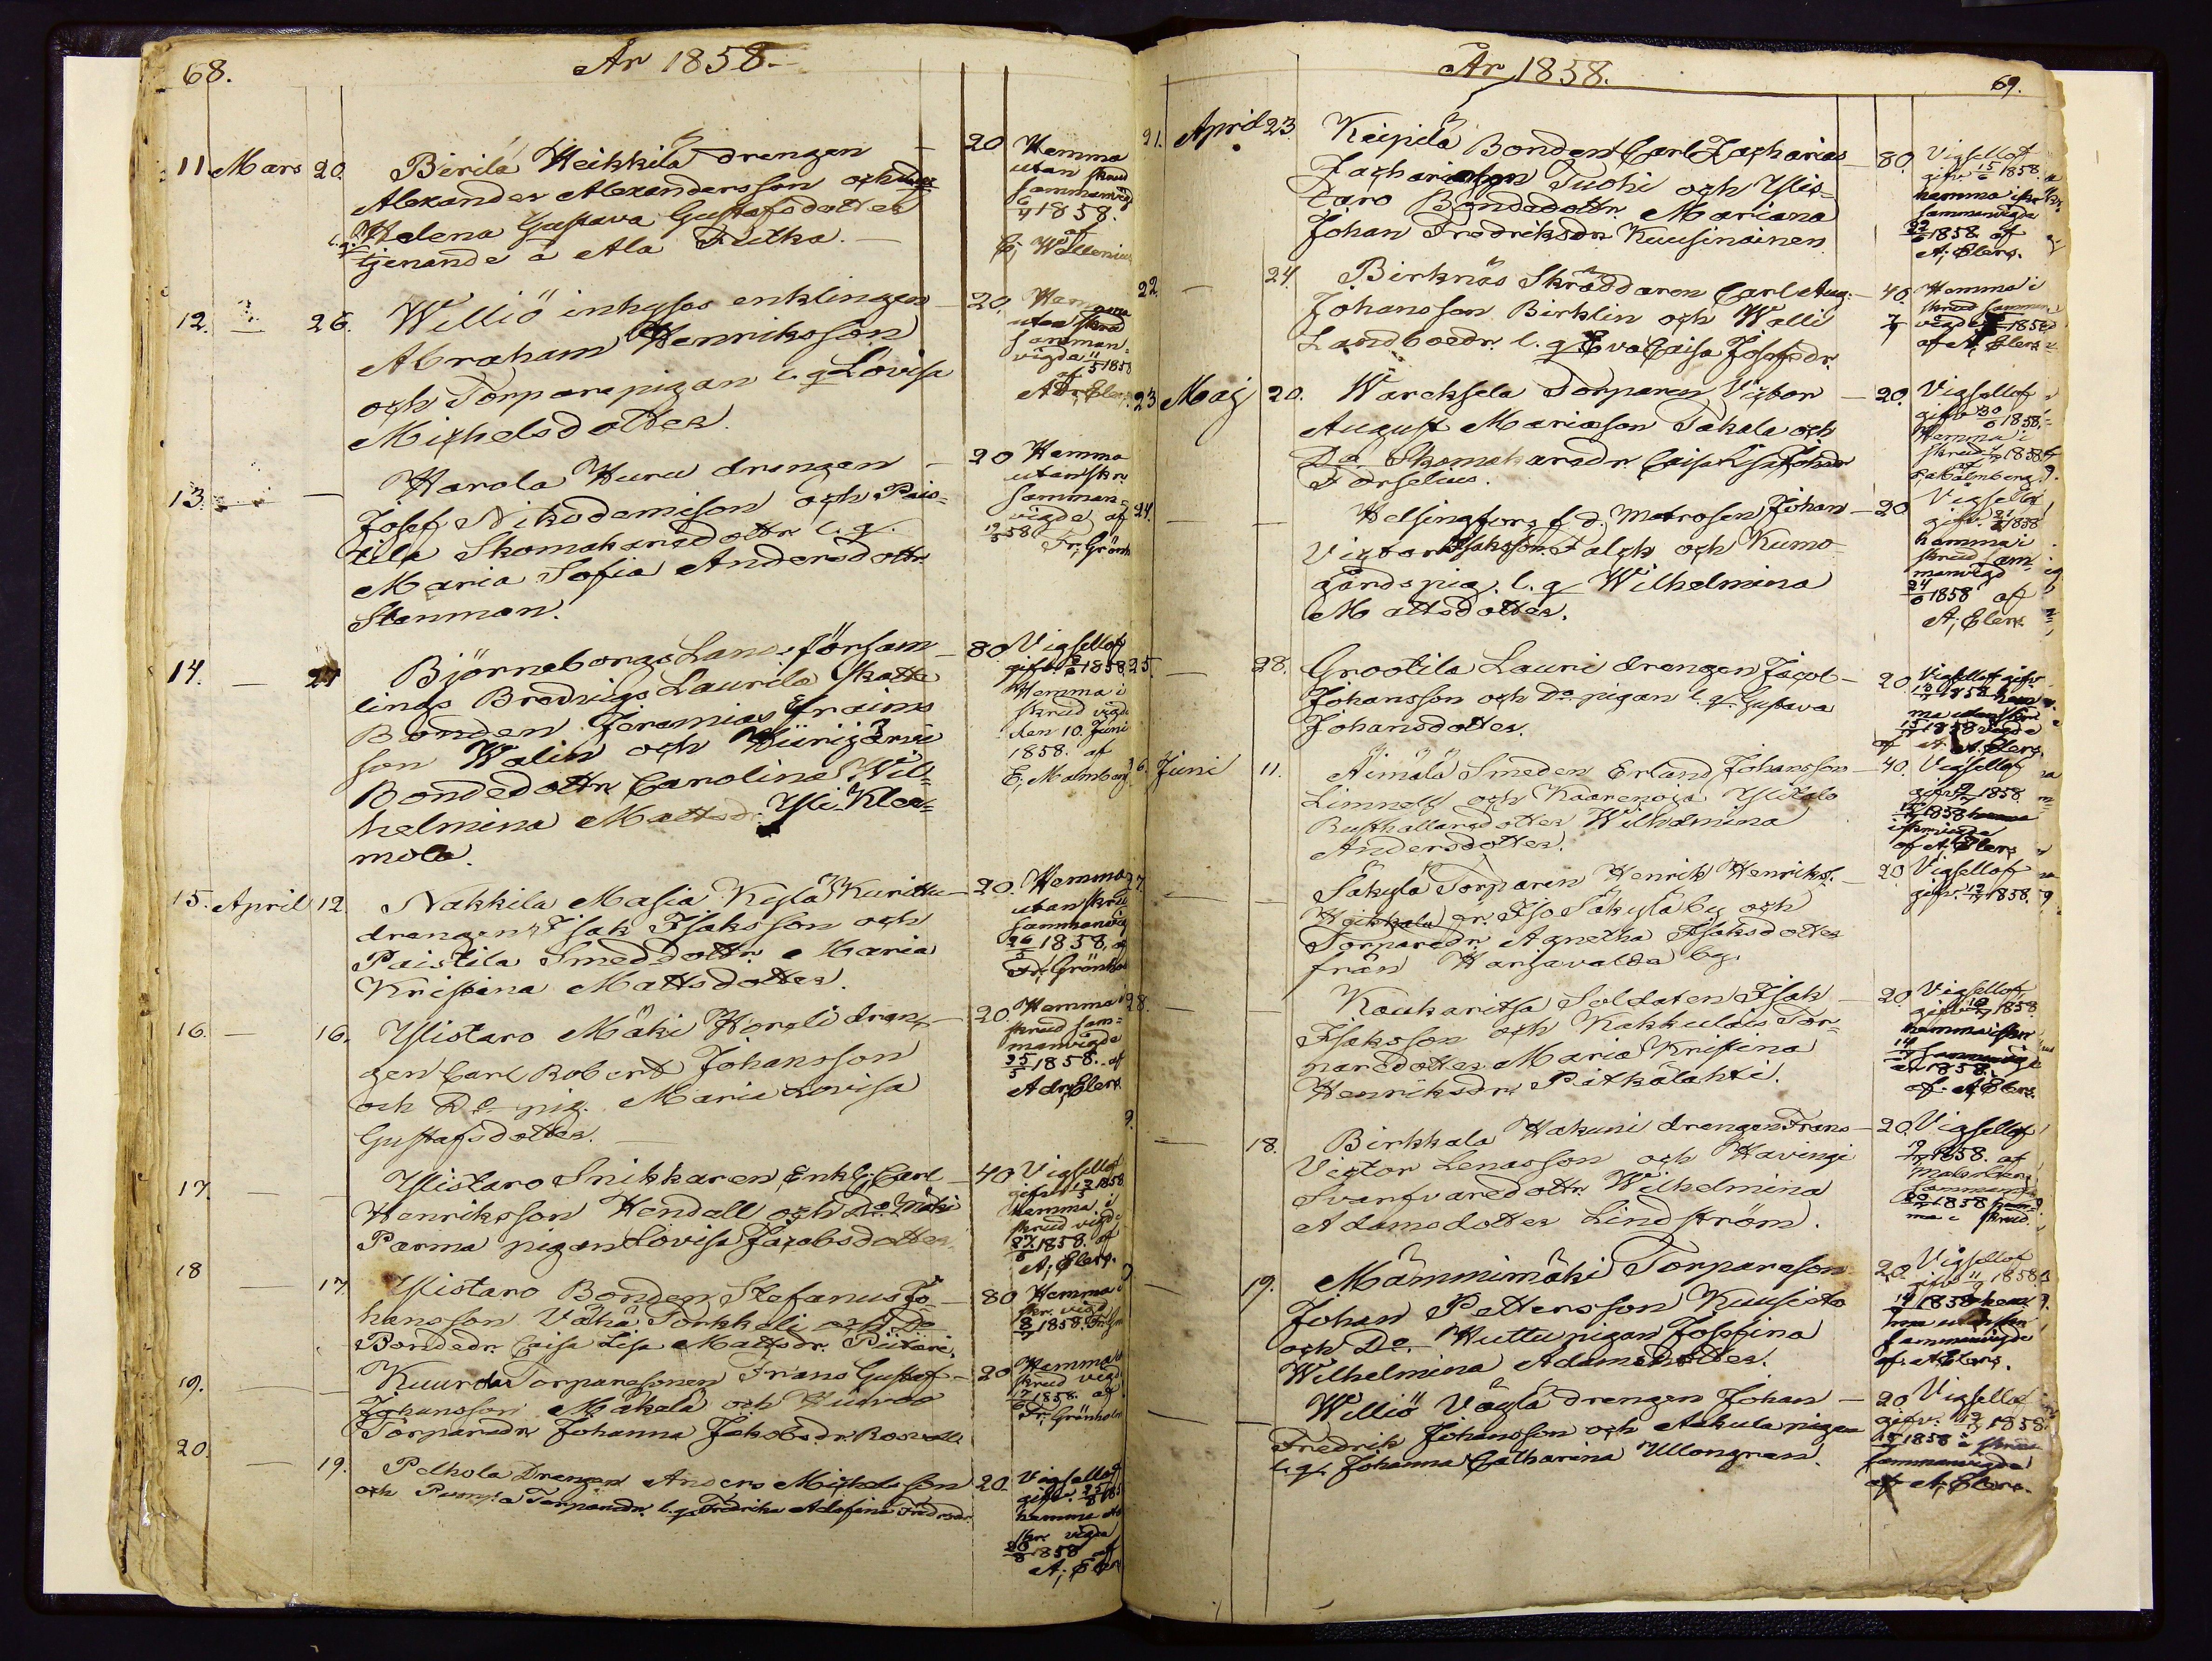 68.
År 1858.
11 Mars 20.
Birilä Heikkilä drengen
Alexander Alexandersson och
Helena Gustava Gustafsdotter
tjenande å Ala Futka.
20 Hemma
utan skrud
sammanvigd
6/4 1858.
af
Wallenius
12. — 26.
Williö inhyses enklingen
Abraham Henriksson
och Torparepigan l. q Lovisa
Michelsdotter.
20. Hemma
utan skrud
samman-
vigda
af 1858
13. —
Harola Huru drengen
Josef Nikodemison och Pais-
tila Skomakaredottr l. q.
Maria Sofia Andersdottr
Stenman.
20 Hemma
utan skr
samman-
vigde af
12/5 58
Fr. Grönh
14. — 27
Björneborgs Lands församlings
Bredvigs Laurila Skatte
Bonden Jeremias Efraims
son Walin och Hiirijärvi
Bondedottr Carolina Wil-
helmina Mattsdr Yli Klee-
mola.
80 Vigsellof
gifv. 1858
Hemma i
skrud vigde
den 10. Juni
1858. af
E. Malmberg
15. April 12.
Nakkila Masia Kylä Kurittu
drengen Isak Isaksson och
Paistila Smeddottr Maria
Kristina Mattsdotter.
20. Hemma
utan skrud
sammanvig
26/5 1858, af
Fr. Grönhol
16. — 16.
Ylistaro Mäki Horeli dren-
gen Carl Robert Johansson
och Do pig. Maria Lovisa
Gustafsdotter.
20 Hemma
skrud sam-
manvigde
25/5 1858. af
Adr. Elers
17. —
Ylistaro Snikkaren, Enkl. Carl
Henriksson Hendell och Do Mäki
Parma pigan Lovisa Jacobsdotter
40 Vigsellof
gifv. 1858
hemma i
skrud vigde
27/6 1858. af
A. Elers.
18 — 17.
Ylistaro Bonden Stefanus Jo-
hansson Vähä Torkkeli och Do
Bondedr. Caisa Lisa Mattsdr. Piitari.
80 Hemma i
skr. vigd
8/7 1858.
19. —
Kuurola Torparesonen Frans Gustaf
Johansson Mäkelä och Hurvoo
Torparedr Johanna Jakobsdr. Rosvall
20 Hemma
skrud vigd
17/6 1858. af
Fr. Grönholm
20. — 19.
Pelhola Drengen Anders Michelsson
och Torparedr. l. q. Fredrika Adolfina Fredrsdr.
20. Vigsellof
gifv. 25/8 185
hemma
skr vigde
26/8 1858 af
A. Eler
År 1858.
69.
21. April 23
Keipilä Bonden Carl Zacharias
Zachariasson Tuohi och Ylis-
taro Bondedottr. Mariana
Johan Fredriksdr Kuusinainen
80. Vigsellof
gifv. 15/6 1858.
hemma i skr
sammanvigde
22/6 1858 af
A. Elers.
22. — 24.
Birknäs Skräddaren Carl Aug.
Johansson Birklin och Walli
Landboedr. l. q Eva Caisa Josefsdr.
40. Hemma i
skrud samman
vigde 1858
af A. Elers
23 Maj 20.
Wareksela Torparen Victor
August Mariason Takala och
Do Skomakaredr. Caisa Lisa Johsdr
Forselius.
20. Vigsellof
gifv 30/6 1858.
Hemma i
skrud 1858
af
Malmberg.
24. —
Helsingfors f. d. Matrosen Johan
Victor Isaksson Falck och Kumo
gårds pig. l. q Wilhelmina
Mattsdotter.
20 Vigsellof
gifv. 21/6 1858
hemma i
skrud sam-
manvigd
24/6 1858 af
A. Elers
25. — 28.
Grootila Lauri drengen Jacob
Johansson och Do pigan l. q. Gustava
Johansdotter.
20. Vigsellof gifv
1858 hem
ma utan skr
15/7 1858 vigde
af A. Elers
26. Juni 11.
Äimälä Smeden Erland Johansson
Limnell och Kaarenoja Ylitalo
Rusthållaredotter Wilhelmina
Andersdotter.
40. Vigsellof
gifv 1858
1858 hemma
i skr vigde
af A. Elers
27. —
Säkylä Torparen Henrik Henrikss.
Heikkala fr. Iso Säkylä by och
Torparedr. Agnetha Isaksdotter
från Harjavalta by.
20 Vigsellof
gifv. 12/7 1858.
28. —
Koukaritsa Soldaten Isak
Isaksson och Kakkulais Tor-
paredotter Maria Kristina
Henriksdr. Pitkälahti.
20 Vigsellof
gifv. 1858
hemma i skr
sammanvigde
1858.
af. A. Elers
— 18.
Birkkala Hakuni drengen Frans
Victor Lenasson och Havingi
Svarfvaredottr. Wilhelmina
Adamsdotter Lindström.
20. Vigsellof
1858. af
Malmberg
samman
1858 hem-
ma i skrud.
— 19.
Mämmimäki Torpareson
Johan Pettersson Kuusisto
och Do. Huttu pigan Josefina
Wilhelmina Adamsdotter.
20. Vigsellof
gifv 1858
1858 hem
ma utan skr
sammanvigde
af. A. Elers.
—
Williö Väylä drengen Johan
Fredrik Johansson och Aakula pigan
l. q. Johanna Catharina Ullongren.
20 Vigsellof
gifv. 1858.
1858 i skrud
sammanvigde
af A. Elers.